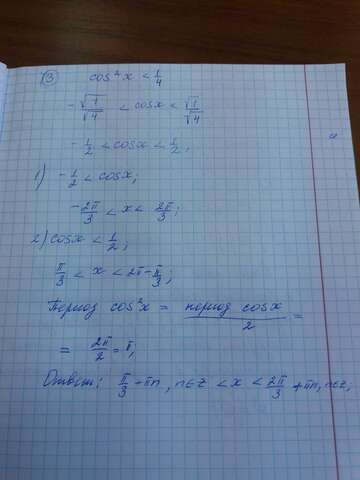 ③ cos²x < 1/4
-√1/√4 < cosx < √1/√4
-1/2 < cosx < 1/2;
1) -1/2 < cosx;
-2π/3 < x < 2π/3;
2) cosx < 1/2;
π/3 < x < 2π - π/3;
Период cos²x = период cosx / 2 =
= 2π/2 = π;
Ответ: π/3 + πn, n∈Z < x < 2π/3 + πn, n∈Z;